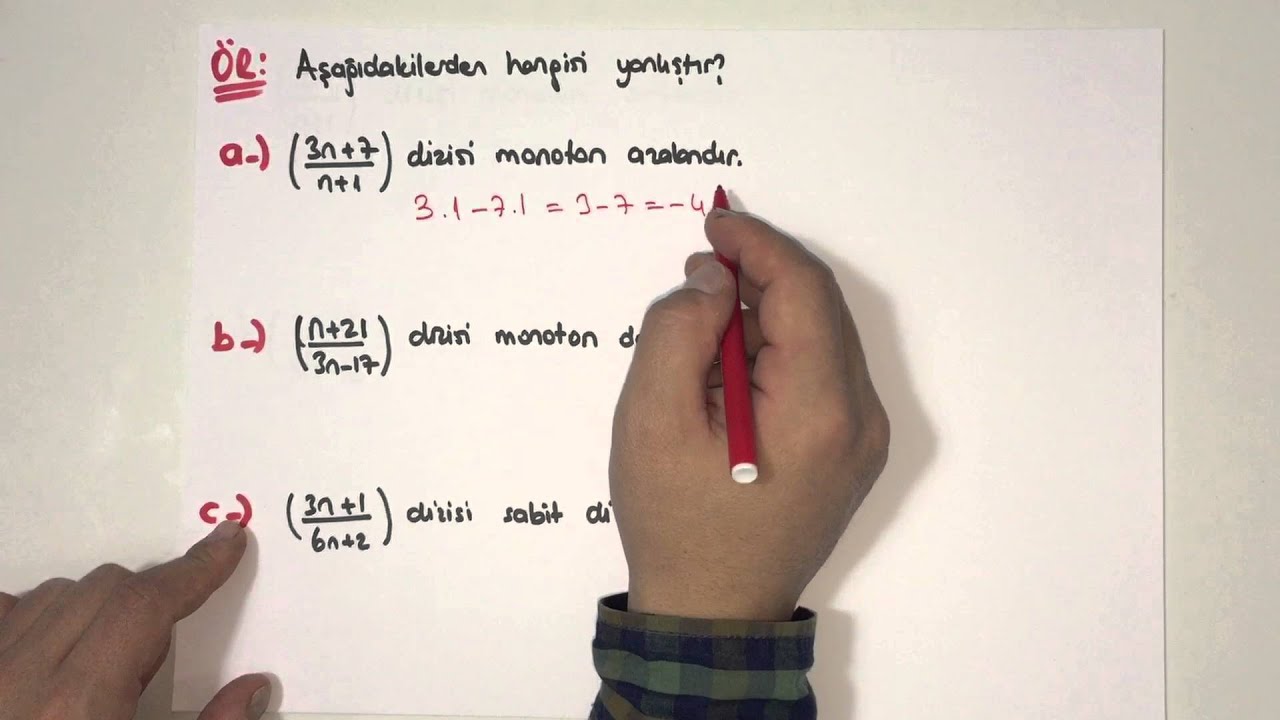 ÖR: Aşağıdakilerden hangisi yanlıştır?
a-) (3n+7 / n+1) dizisi monoton azalandır.
3.1-7.1 = 3-7 = -4
b-) (n+21 / 3n-17) dizisi monoton
c-) (3n+1 / 6n+2) dizisi sabit